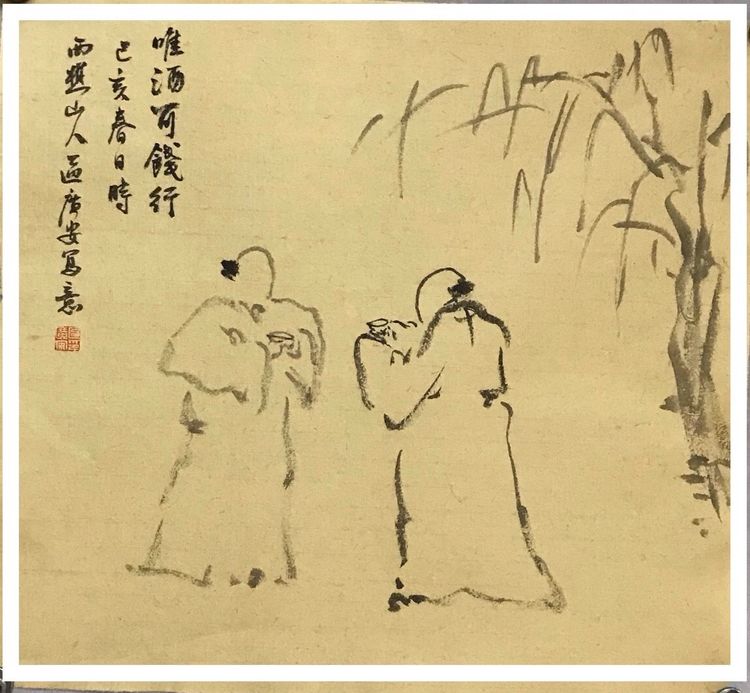 唯酒可餞行
己亥春日時
西樵山人區廣安寫意